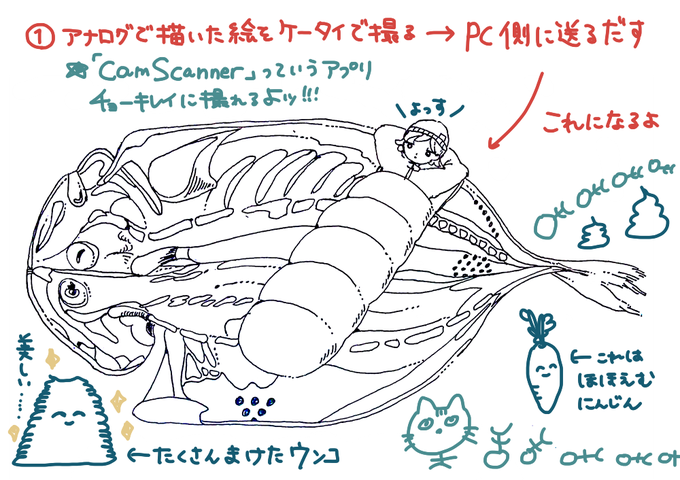 ① アナログで描いた絵をケータイで撮る → PC側に送るだす
☆「CamScanner」っていうアプリ
チョーキレイに撮れるよッ!!!
\よっす/
これになるよ
美しい……
←これは
ほほえむ
にんじん
←たくさんまけたウンコ